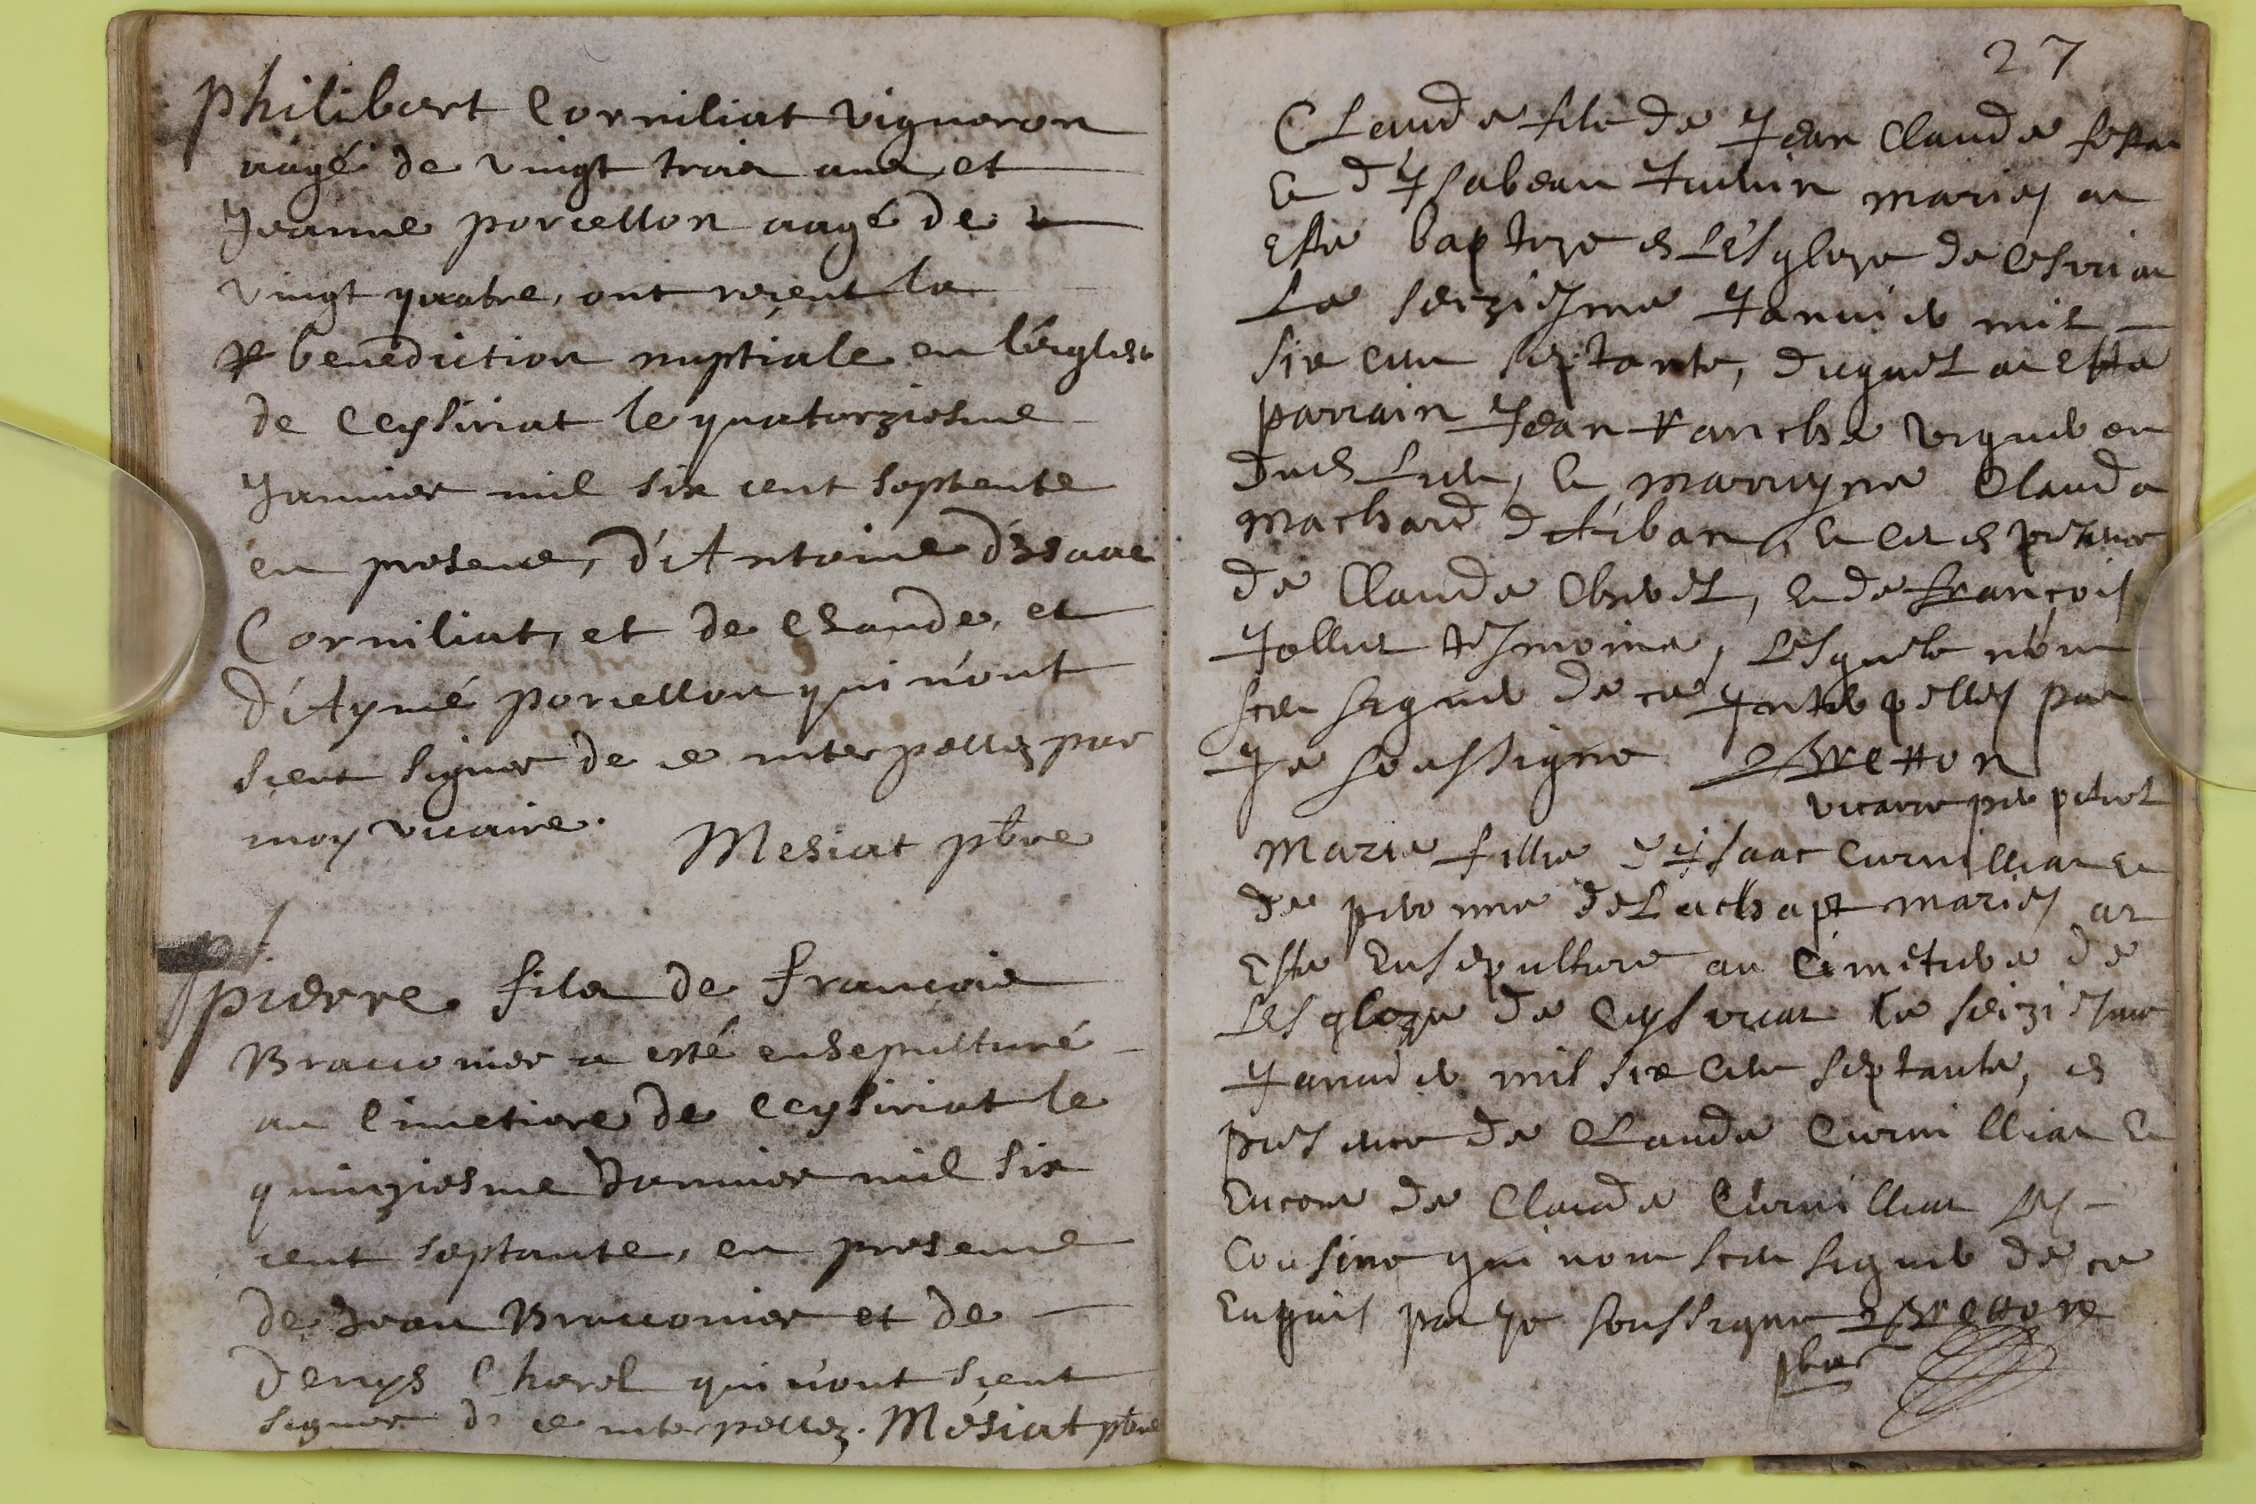 Philibert Corniliat vigneron
aagé de vingt trois ans et
Jeanne porcellon aagé de
vingt quatre, ont reçeut la
benediction nuptiale en l'eiglise
de Ceysiriat le quatorziesme
Janvier mil six cent septente
en presence, d'Antoine d'Isaac
Corniliat, et de Claude, et
d'Aymé porcellon qui n'ont
sçeut signer de ce interpellez par
moy vicaire.
Mesiat pbre
pierre fils de françois
Braconier a esté ensepulturé
au Cimetiere de Ceysiriat le
quinziesme Janvier mil six
cent septante, en presence
de Jean Braconier et de
denys Chorel qui n'ont sçeut
signer de ce interpellez. Mésiat pbre
27
Claude fils de Jean Claude
et d'Ysabeau Juvin mariés at
esté baptize en l'esgleze de Cesiriat
Le seiziesme Janvier mil
six cent septante, duquel at esté
parrain Jean vigneron
dud lieu, et marrayne Clauda
Machard et ce en presence
de Claude Chevel, et de françois
Jollut tesmoins, Lesquels n'ont
sceu signer de ce Interpellés par
Je soussigné Bretton
vicaire perpetuel
Marie fillie d'Isaac Cornilliat et
de pivonne delachapt mariés at
esté ensepulture au Cimetiere de
Lesgleze de Ceysiriat le seiziesme
Janvier mil six cent septante, en
presence de Claude Cornilliat et
encore de Claude Cornilliat ses
Cousins qui nont sceu signer de ce
enquis par Je soussigné Bretton
pbre